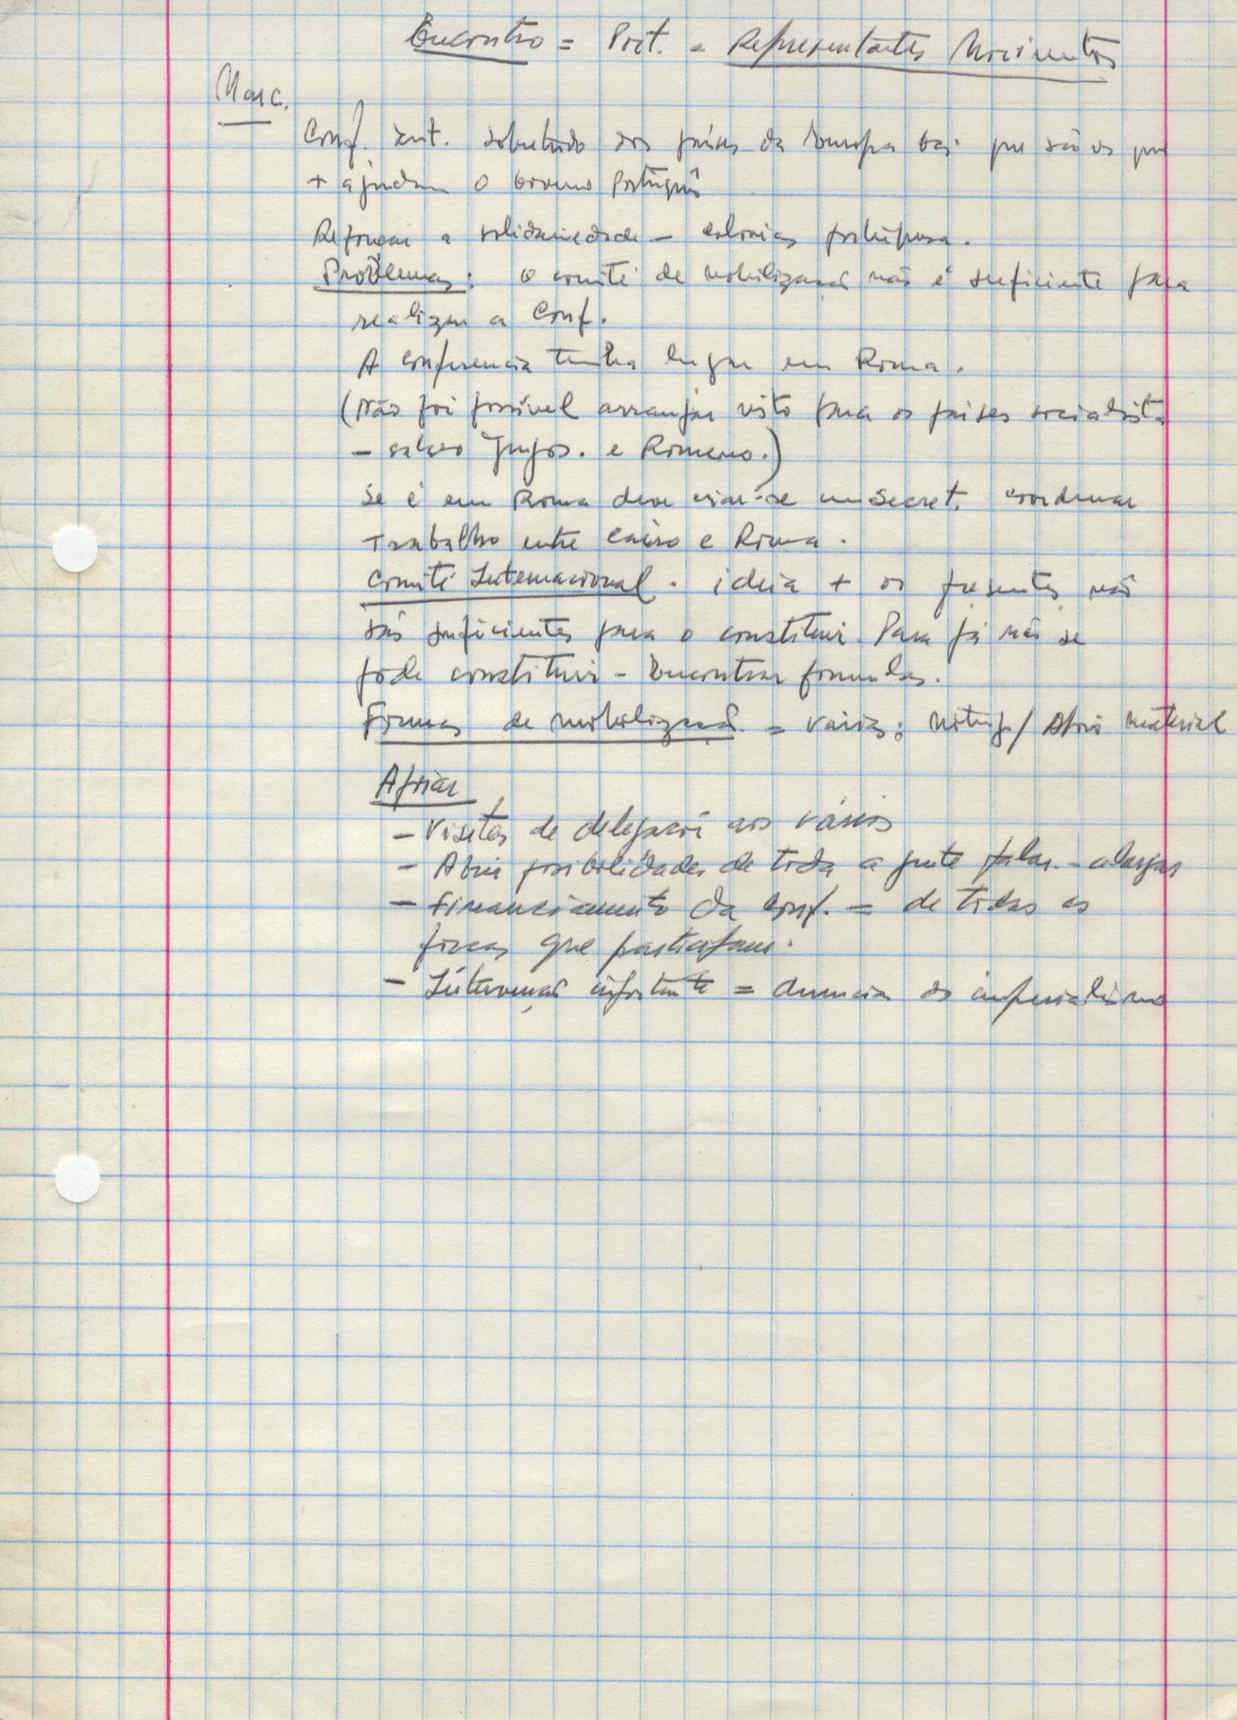 Encontro = Port. = Representantes Movimentos
Marc.
Conf. int. sobretudo dos países da Europa que são os que
+ ajudam o Governo Português
Reforçar a solidariedade - colonias portuguesa.
Problemas: o comité de mobilização não é suficiente para
realizar a Conf.
A conferencia tenha lugar em Roma.
(Não foi possível arranjar visto para os países socialistas
- salvo Jugos. e Romeno.)
Se é em Roma deve criar-se um Secret. coordenar
trabalho entre Cairo e Roma.
Comité Internacional. ideia + os presentes não
são suficientes para o constituir. Para já não se
pode constituir - Encontrar formulas.
Formas de mobilização = várias: / Apoio material
- Visitas de delegação aos vários
- Abrir possibilidades de toda a gente falar - alargar
- Financiamento da Conf. = de todas as
forças que participam.
- Intervenção importante = denuncia do imperialismo